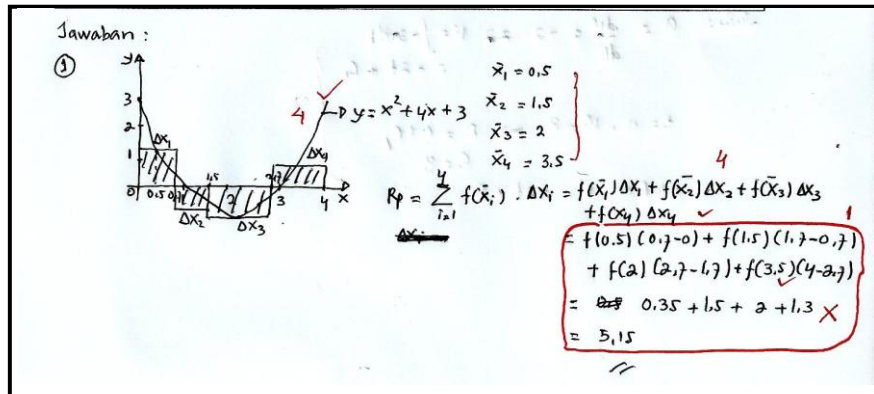 Jawaban :
①
y
3
2
1
0
Δx₁
0.5
0,7
1,5
Δx₂
2
Δx₃
2,7
3
Δx₄
4
x
4 ✓
y = x² + 4x + 3
x̄₁ = 0,5
x̄₂ = 1,5
x̄₃ = 2
x̄₄ = 3.5
4
Rp = Σ f(x̄ᵢ) . Δxᵢ = f(x̄₁) Δx₁ + f(x̄₂) Δx₂ + f(x̄₃) Δx₃
4
i=1
+ f(x₄) Δx₄ ✓
1
= f(0.5) (0,7-0) + f(1.5) (1,7-0,7)
+ f(2) (2,7-1,7) + f(3,5) (4-2,7) ✓
= 0.35 + 1.5 + 2 + 1.3 X
= 5,15